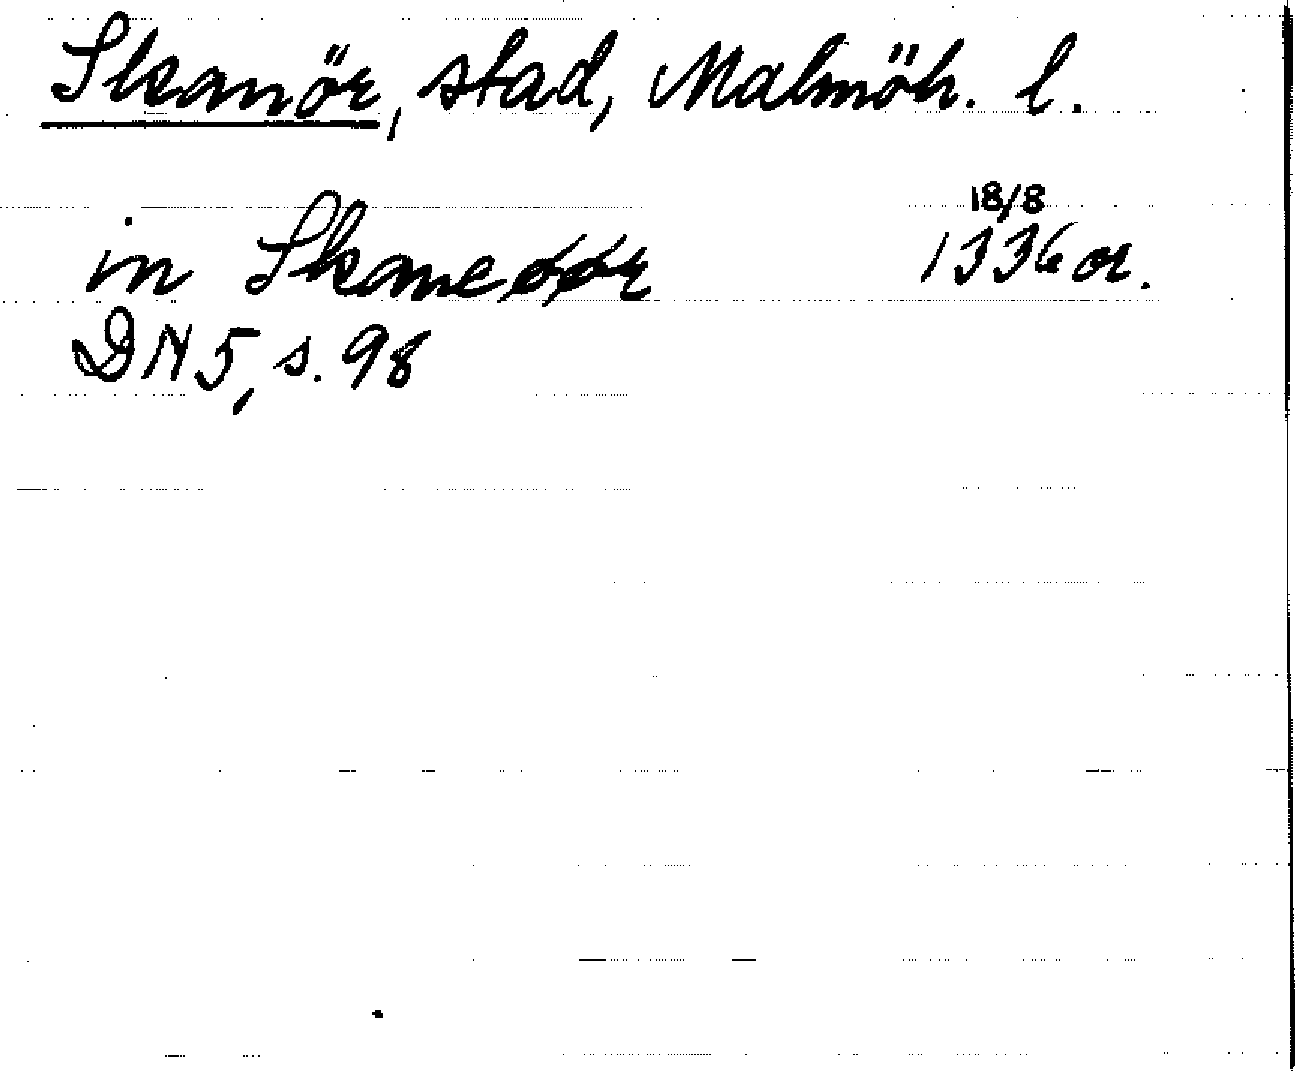 Skanör, stad, Malmöh. l.
in Skaneøør 18/8 1336 or.
DN 5, s. 98